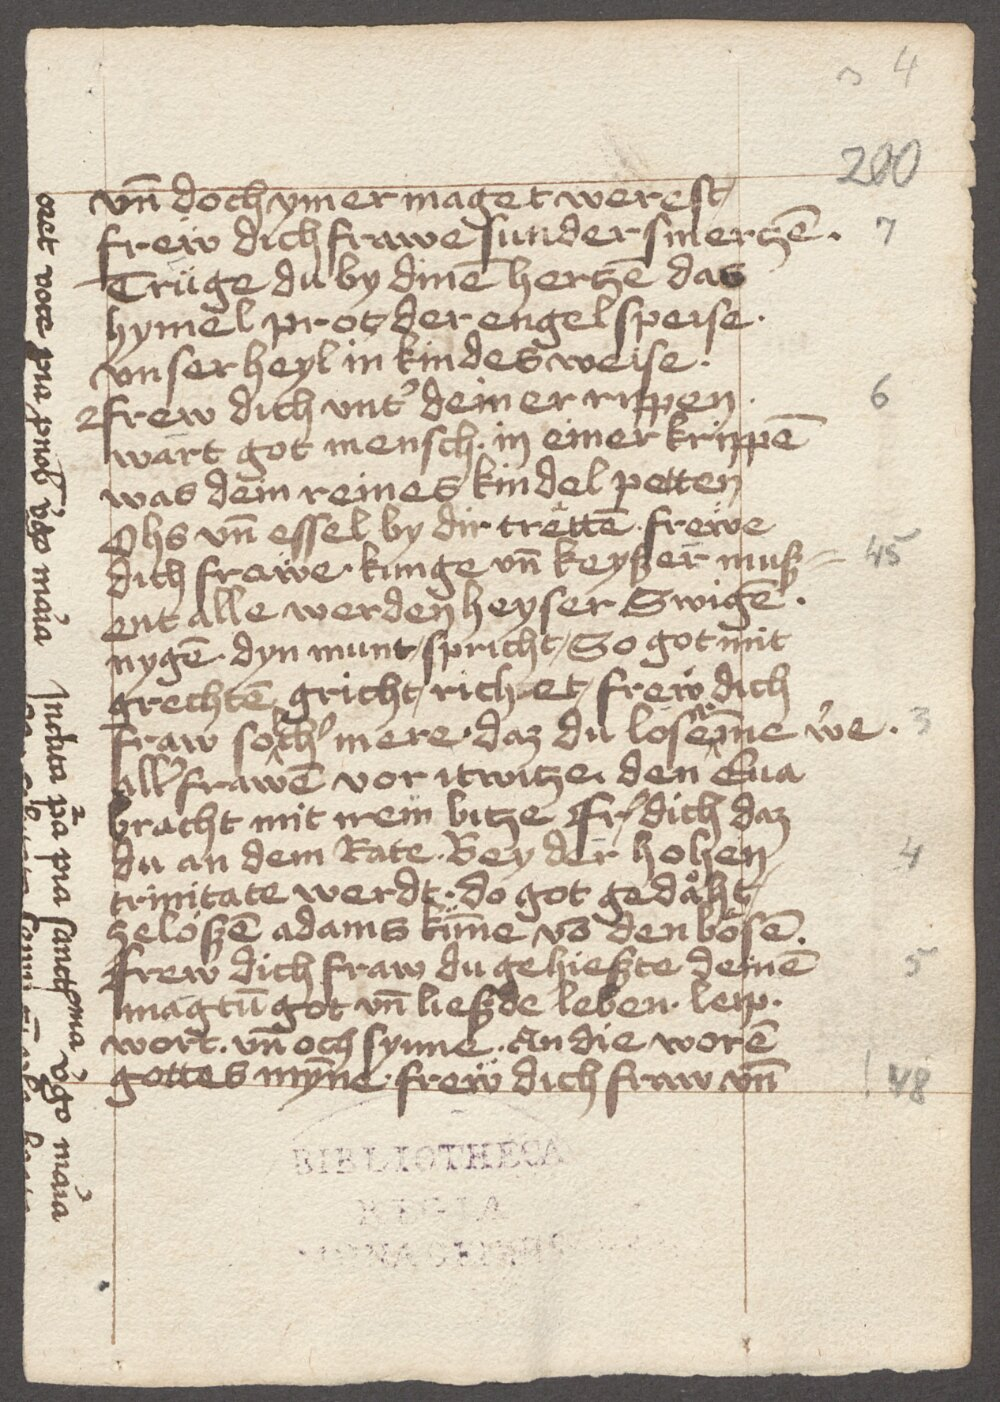 4
200
vn̄ doch ymer maget werest
frew dich frawe sunder smertzē. 7
Trüge du by dinē hertzē das
hymel prot der engel speise.
vnser heyl in kindes weise.
frew dich vnt᾽ deiner rippen. 6
wart got mensch. in einer krippē
was dein reines kindel petten
Ohs vn̄ essel by dir trettē. frewe
dich frawe. kunge vn̄ keyßer muß= 45
ent alle werden heyser Swigē.
nygē. dyn munt spricht So got mit
grechtē gricht richtet frew dich
fraw solch᾽ mere. daz du
all᾽ frawē vor itwitze. den Eua
bracht mit irem bitze Fr dich daz
du an dem Rate. Bey der hohen 4
trinitate werdt. do got gedaht
zelößē adams den bösē.
frew dich fraw du gehießte deinē 5
magtū got vn̄ ließde leben. leip.
wort. vn̄ och synne. An die worē
gottes myn̄e. frew dich fraw vn̄ 48
BIBLIOTHECA
REGIA